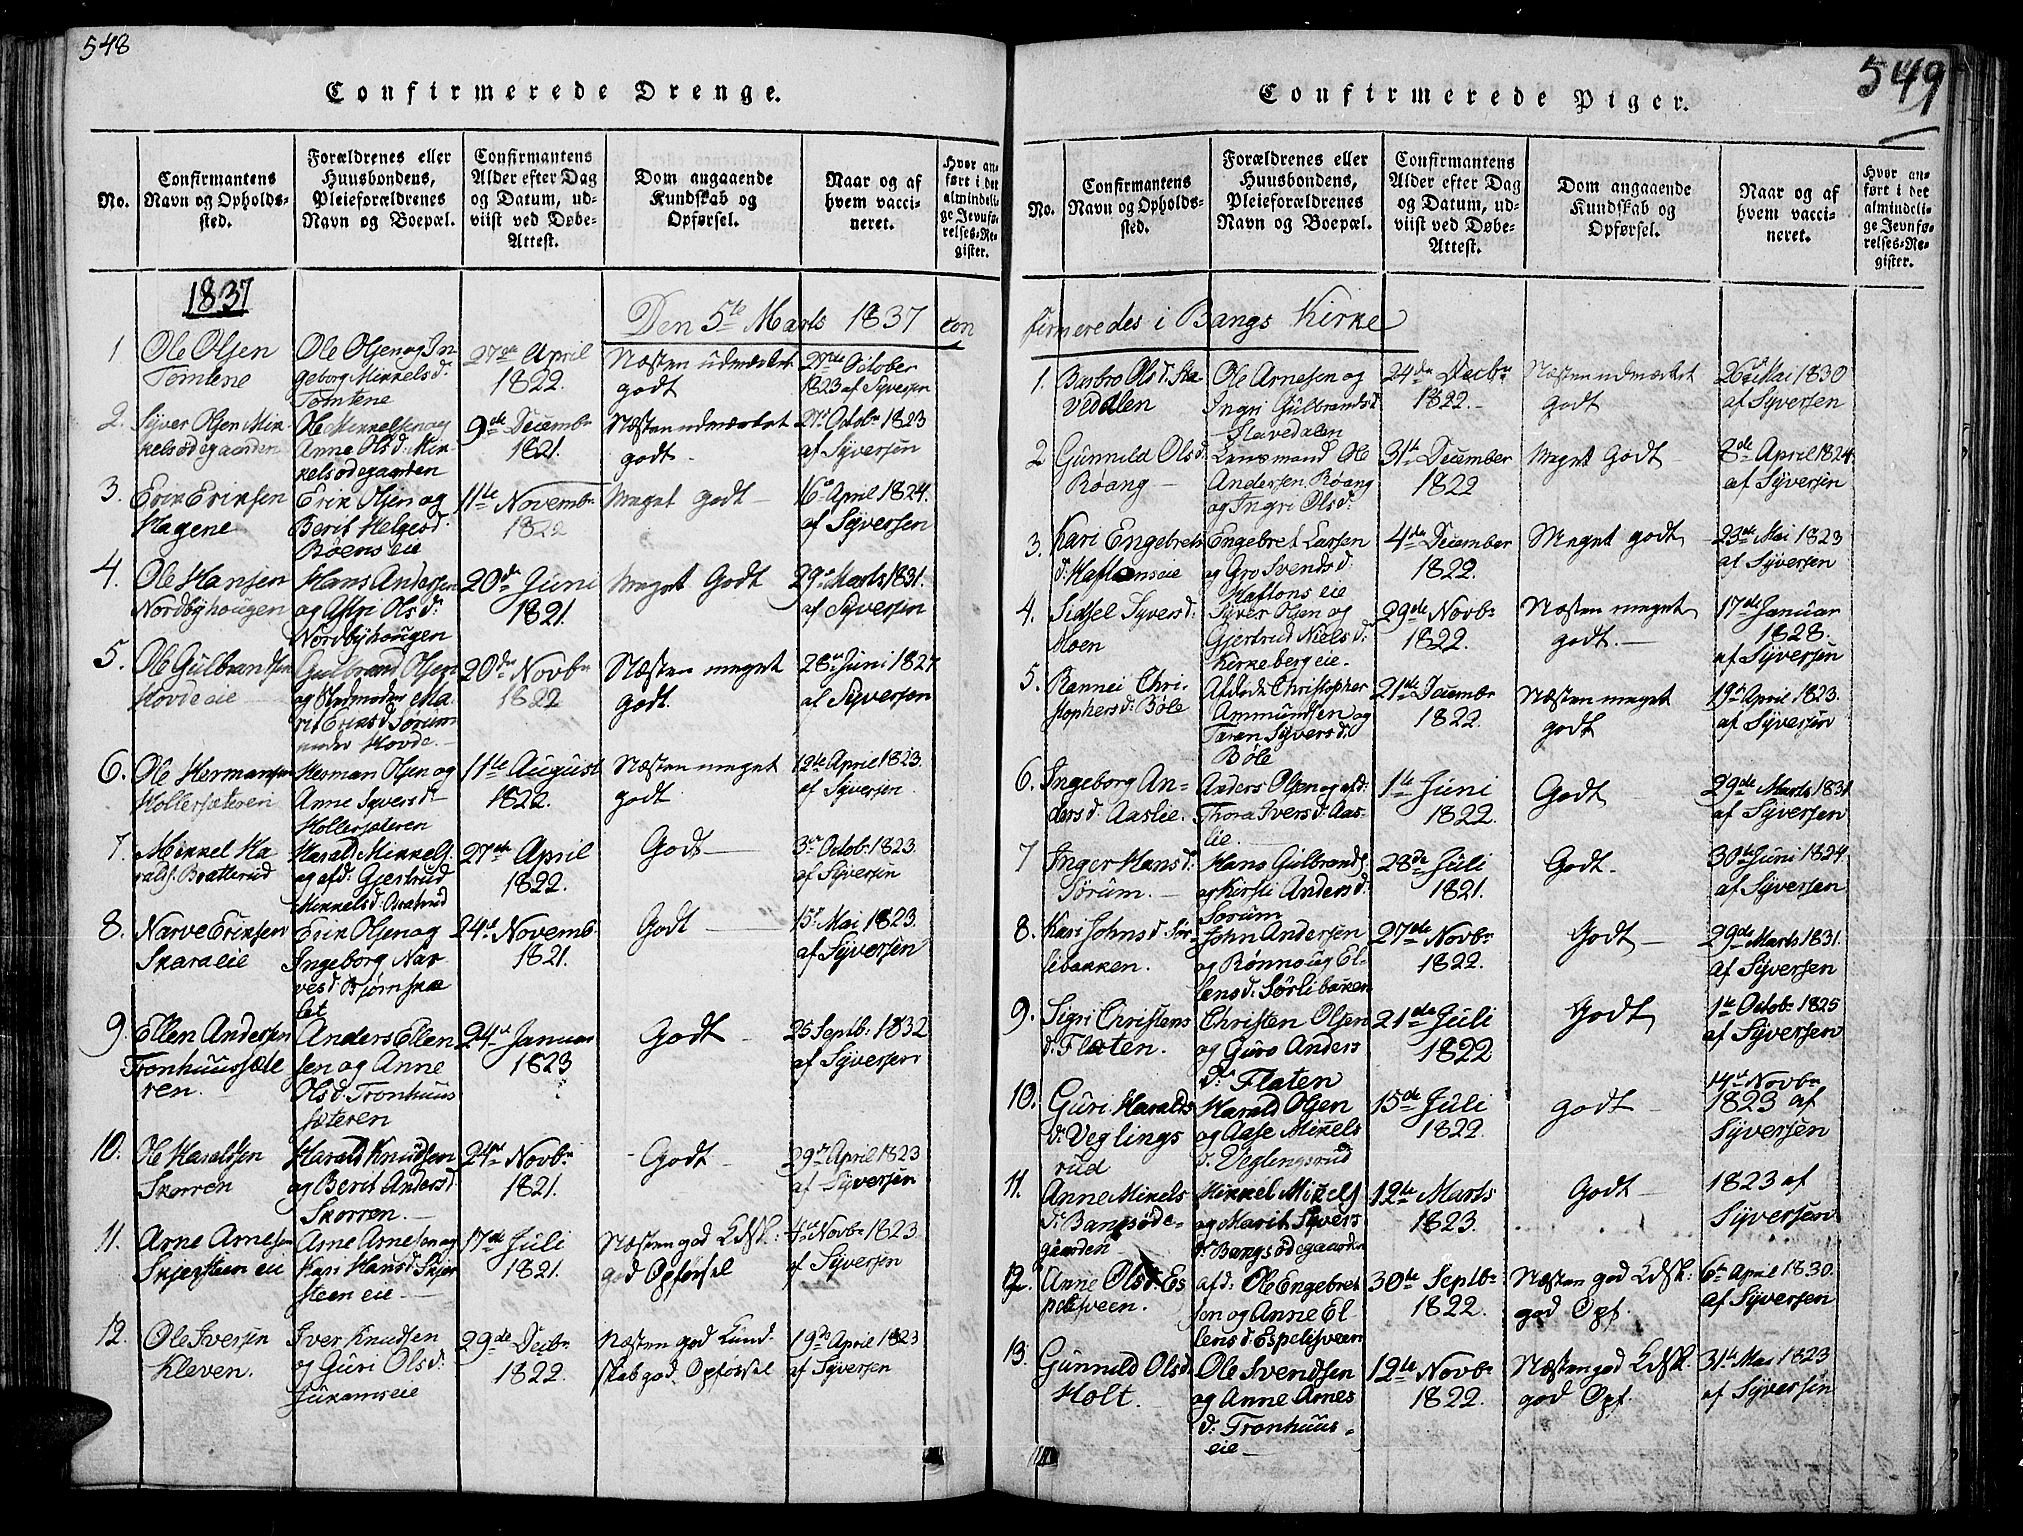 548
Confirmerede Drenge.
No.
Confirmantens
Navn og Opholds-
sted.
Forældrenes eller
Huusbondens,
Pleieforældrenes
Navn og Boepæl.
Confirmantens
Alder efter Dag
og Datum, ud-
viist ved Døbe-
Attest.
Dom angaaende
Kundskab og
Opførsel.
Naar og af
hvem vacci-
neret.
Hvor an-
ført i det
almindeli-
ge Jevnfø-
relses-Re-
gister.
1837
Den 5te Marts 1837 con
1
Ole Olsen
Tomlene
Ole Olsen og In
geborg Mikkelsd:
Tomlene
27de April
1822.
Næsten udmærket
godt
27de October
1823 af Syversen
2.
Syver Olsen Mik
kelsødegaarden
Ole Mikkelsen og
Anne Olsd: Mik
kelsødegaarden
9de Decembr
1821.
Næsten udmærket
godt
27de Octobr 1823
af Syversen
3.
Erik Eriksen
Hagene
Erik Olsen og
Berit Helgesd:
Røens eie
11te Novembr
1822
Meget godt
16de April 1824.
af Syversen
4.
Ole Hansen
Nordbyhougen
Hans Andersen
og Astri Olsd:
Nordbyhougen
20de Juni
1821.
Meget Godt
29de Marts 1831.
af Syversen
5.
Ole Gulbrandsen
Hovde eie
Gulbrand Olsen
og Marit Eriksd: Sørum
under Hovde.
20de Novbr
1822
Næsten meget
godt.
28de Juni 1827
af Syversen
6.
Ole Hermansen
Hollersæteren
Herman Olsen og
Anne Syversd:
Hollersæteren
11te August
1822.
Næsten meget
godt.
12te April 1823.
af Syversen
7.
Mikkel Ha
ralds: Brætterud
Harald Mikkels:
og afd: Gjertrud
Mikkelsd:
27de April
1822.
Godt
3de Octob: 1823
af Syversen
8.
Narve Eriksen
Skaraeie
Erik Olsen og
Ingeborg Nar
vesd: Bjørnskæ
let
24de Novemb.
1821.
Godt
15de Mai 1823.
af Syversen
9.
Ellen Andersen
Tronhuussæte
ren.
Anders Ellen
sen og Anne
Olsd: Tronhuus
sæteren
24de Januar
1823
Godt
25 Septb: 1832
af Syversen
10.
Ole Haraldsen
Skorren
Harald Knudsen
og Berit Andersd:
Skorren.
24de Novbr
1821.
Godt
29de April 1823
af Syversen
11.
Arne Arnesen
Skjersteen eie
Arne Arnesen og
Kari Hansd: Skjer
steen eie
17de Juli
1821.
Næsten god Kdsk:
god Opførsel
4de Novbr 1823.
af Syversen
12.
Ole Iversen
Kleven.
Iver Knudsen
og Guri Olsd:
Juramseie
29de Decbr
1822.
Næsten god Kund-
skab god Opførsel
19de April 1823
af Syversen
549
Confirmerede Piger.
No.
Confirmantens
Navn og Opholds-
sted.
Forældrenes eller
Huusbondens,
Pleieforældrenes
Navn og Boepæl.
Confirmantens
Alder efter Dag
og Datum, ud-
viist ved Døbe-
Attest.
Dom angaaende
Kundskab og
Opførsel.
Naar og af
hvem vacci-
neret.
Hvor an-
ført i det
almindeli-
ge Jevnfø-
relses-Re-
gister.
firmeredes i Bangs Kirke
1.
Barbro Olsd: Sla
vedalen
Ole Arnesen og
Ingri Gulbrandsd:
Slavedalen
24de Decbr
1822.
Næsten udmærket
godt
26de Mai 1830
af Syversen
2
Gunnild Olsd:
Røang
Lensmand Ole
Andersen Røang
og Ingri Olsd:
31te December
1822
Meget Godt
8de April 1824.
af Syversen
3.
Kari Engebrets
d: Haftonseie
Engebret Larsen
og Gro Svendsd:
Haftons eie
4de December
1822.
Meget godt
23de Mai 1823
af Syversen
4.
Sidsel Syversd:
Moen
Syver Olsen og
Gjertrud Nielsd:
Kirkeberg eie.
29de Novbr
1822.
Næsten meget
godt.
17de Januar
1828.
af Syversen
5.
Rannei Chri-
stophersd: Bøle
Christopher
Ammundsen og
Taran Syversd:
Bøle
21de Decembr
1822.
Næsten meget
godt
19de April 1823.
af Syversen
6.
Ingeborg An-
dersd: Aaslie.
Anders Olsen og afd:
Thora Iversd: Aas-
lie
1te Juni
1822.
Godt
29de Marts 1831
af Syversen
7
Inger Hansd:
Sørum.
Hans Gulbrands:
og Kirsti Andersd:
Sorum
28de Juli
1821.
Godt.
30te Juni 1824.
af Syversen
8.
Kari Johnsd: Sør
libakken.
John Andersen
og Rønnoug El-
lensd: Sørlibaken
27de Novbr
1822.
Godt
29de Marts 1831.
af Syversen
9.
Sigri Christens
d: Flaten.
Christen Olsen
og Guro Anders
d: Flaten
21de Juli
1822
Godt
1te Octobr 1825
af Syversen
10.
Guri Haralds
d: Veglings
rud
Harald Olsen
og Aase Mikkels
d: Veglingsrud
15de Juli
1822.
godt
14de Novbr
1823 af
Syversen
11.
Anne Mikels
d: Bangsøde-
gaarden
Mikkel Mikels:
og Marit Syvers
d: Bangsødegaarden
12te Marts
1823.
Godt
1823 af
Syversen
12.
Anne Olsd: Es
pelisveen.
afd: Ole Engebret
sen og Anne El
lensd: Espelisveen
30te Septbr
1822.
Næsten god Kdsk:
god Opf.
6te April 1830.
af Syversen
13.
Gunnild Olsd:
Holt.
Ole Svendsen
og Anne Arnes
d: Tronhuus-
eie
12te Novbr
1822.
Næsten god Kdsk:
god Opf.
31te Mai 1823
af Syversen